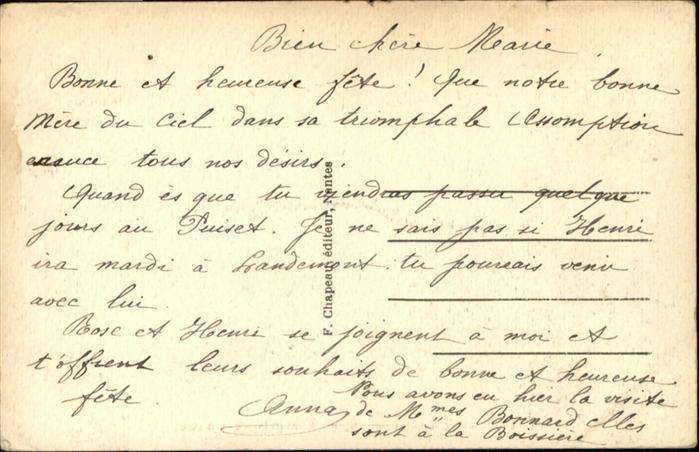 Bien chère Marie
Bonne et heureuse fête! Que notre bonne
Mère du Ciel dans sa triomphale Assomption
exauce tous nos désirs.
Quand ès que tu viendras passer quelque
jours au Puiset. Je ne sais pas si Henri
ira mardi à Landemont. tu pourrais venir
avec lui.
Rose et Henri se joignent à moi et
t'offrent leurs souhaits de bonne et heureuse
fête.
Anna
Nous avons eu hier la visite
de Mmes Bonnard elles
sont à la Boissière
F. Chapeau, éditeur, Nantes